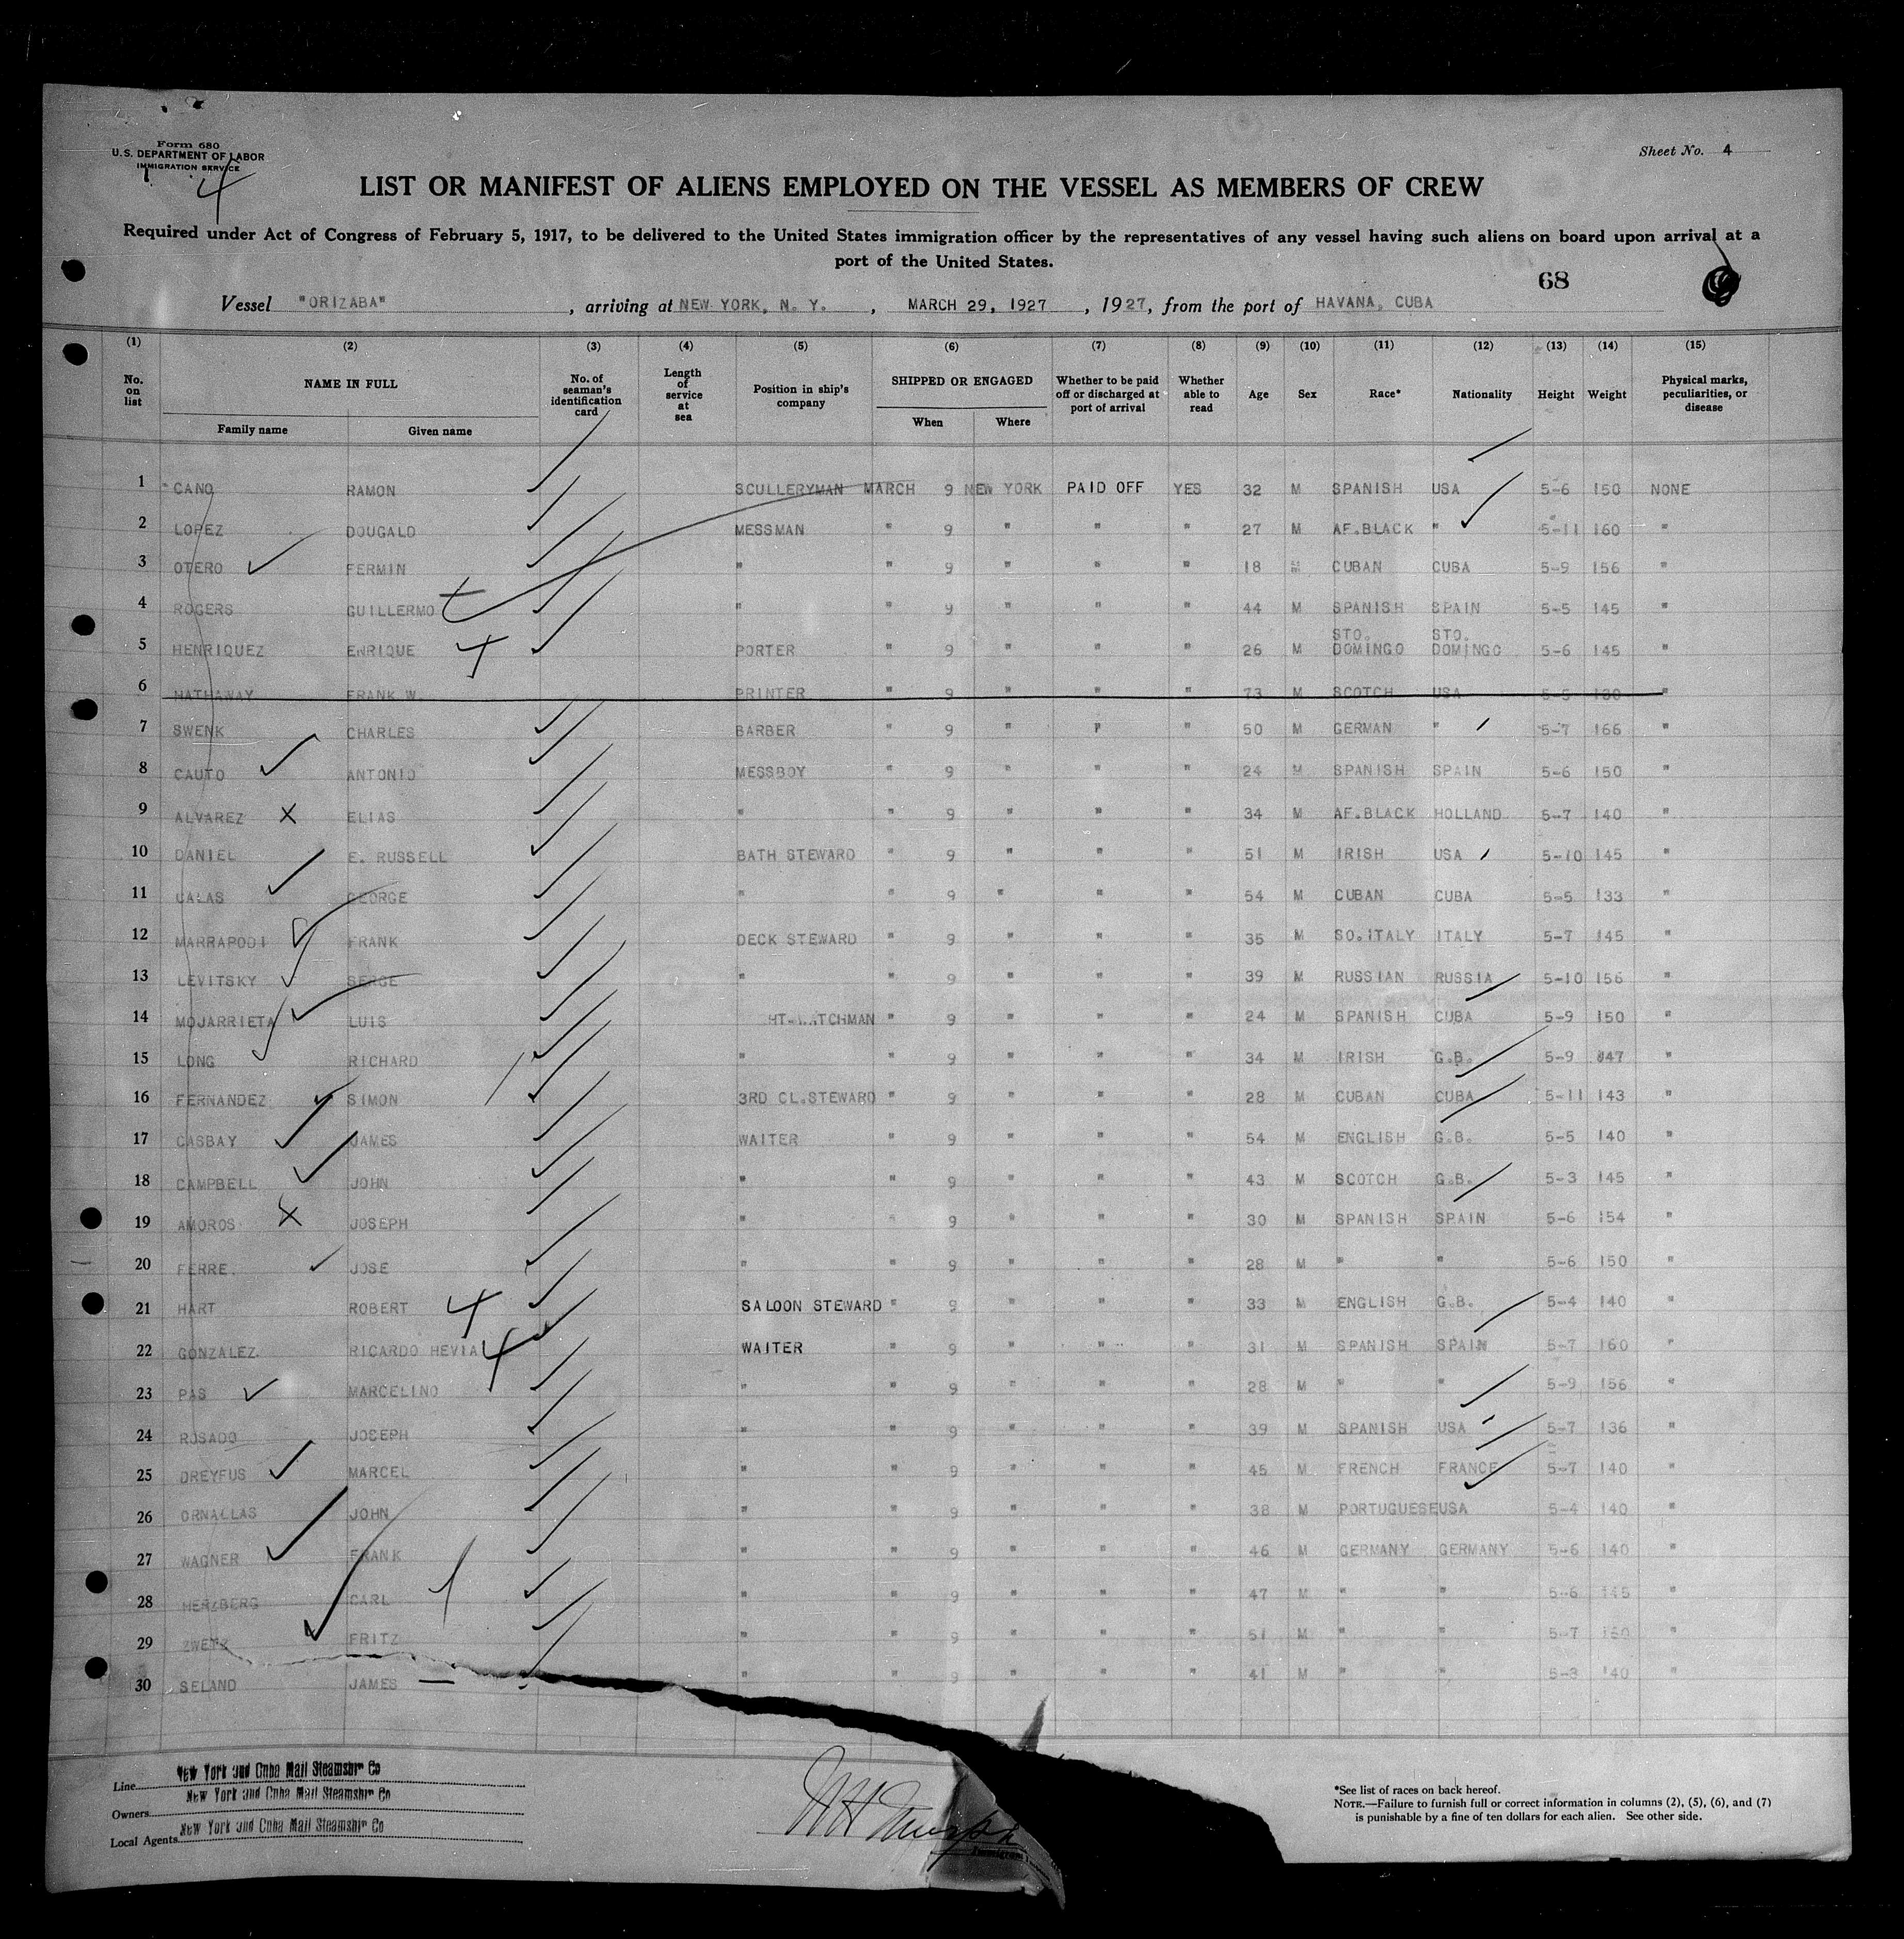 Form 680
U.S. DEPARTMENT OF LABOR
IMMIGRATION SERVICE
4
Sheet No. 4
LIST OR MANIFEST OF ALIENS EMPLOYED ON THE VESSEL AS MEMBERS OF CREW
Required under Act of Congress of February 5, 1917, to be delivered to the United States immigration officer by the representatives of any vessel having such aliens on board upon arrival at a
port of the United States.
68
Vessel "ORIZABA", arriving at NEW YORK, N. Y., MARCH 29, 1927, 1927, from the port of HAVANA, CUBA
(1) (2) (3) (4) (5) (6) (7) (8) (9) (10) (11) (12) (13) (14) (15)
No. on list NAME IN FULL Family name Given name No. of seaman's identification card Length of service at sea Position in ship's company SHIPPED OR ENGAGED When Where Whether to be paid off or discharged at port of arrival Whether able to read Age Sex Race* Nationality Height Weight Physical marks, peculiarities, or disease
1 CANO RAMON SCULLERYMAN MARCH 9 NEW YORK PAID OFF YES 32 M SPANISH USA 5-6 150 NONE
2 LOPEZ DOUGALD MESSMAN " 9 " " " 27 M AF.BLACK " 5-11 160 "
3 OTERO FERMIN " " 9 " " " 18 M CUBAN CUBA 5-9 156 "
4 ROGERS GUILLERMO " " 9 " " " 44 M SPANISH SPAIN 5-5 145 "
5 HENRIQUEZ ENRIQUE 4 PORTER " 9 " " " 26 M STO. DOMINGO STO. DOMINGO 5-6 145 "
6 HATHAWAY FRANK W. PRINTER " 9 " " " 73 M SCOTCH USA 5-5 130 "
7 SWENK CHARLES BARBER " 9 " " " 50 M GERMAN " 5-7 166 "
8 CAUTO ANTONIO MESSBOY " 9 " " " 24 M SPANISH SPAIN 5-6 150 "
9 ALVAREZ X ELIAS " " 9 " " " 34 M AF.BLACK HOLLAND 5-7 140 "
10 DANIEL E. RUSSELL BATH STEWARD " 9 " " " 51 M IRISH USA 5-10 145 "
11 CALAS GEORGE " " 9 " " " 54 M CUBAN CUBA 5-5 133 "
12 MARRAPODI FRANK DECK STEWARD " 9 " " " 35 M SO.ITALY ITALY 5-7 145 "
13 LEVITSKY SERGE " " 9 " " " 39 M RUSSIAN RUSSIA 5-10 156 "
14 MOJARRIETA LUIS HT-WATCHMAN " 9 " " " 24 M SPANISH CUBA 5-9 150 "
15 LONG RICHARD " " 9 " " " 34 M IRISH G.B. 5-9 147 "
16 FERNANDEZ SIMON 3RD CL.STEWARD " 9 " " " 28 M CUBAN CUBA 5-11 143 "
17 CASBAY JAMES WAITER " 9 " " " 54 M ENGLISH G.B. 5-5 140 "
18 CAMPBELL JOHN " " 9 " " " 43 M SCOTCH G.B. 5-3 145 "
19 AMOROS X JOSEPH " " 9 " " " 30 M SPANISH SPAIN 5-6 154 "
20 FERRE. JOSE " " 9 " " " 28 M " " 5-6 150 "
21 HART ROBERT 4 SALOON STEWARD " 9 " " " 33 M ENGLISH G.B. 5-4 140 "
22 GONZALEZ. RICARDO HEVIA 4 WAITER " 9 " " " 31 M SPANISH SPAIN 5-7 160 "
23 PAS MARCELINO " " 9 " " " 28 M " " 5-9 156 "
24 ROSADO JOSEPH " " 9 " " " 39 M SPANISH USA 5-7 136 "
25 DREYFUS MARCEL " " 9 " " " 45 M FRENCH FRANCE 5-7 140 "
26 ORNALLAS JOHN " " 9 " " " 38 M PORTUGUESE USA 5-4 140 "
27 WAGNER FRANK " " 9 " " " 46 M GERMANY GERMANY 5-6 140 "
28 HERZBERG CARL " " 9 " " " 47 M " " 5-6 145 "
29 ZWETZ FRITZ " " 9 " " " 51 M " " 5-7 "
30 SELAND JAMES " " 9 " " " 41 M " " 5-3 140 "
Line New York and Cuba Mail Steamship Co
Owners New York and Cuba Mail Steamship Co
Local Agents New York and Cuba Mail Steamship Co
*See list of races on back hereof.
NOTE.—Failure to furnish full or correct information in columns (2), (5), (6), and (7)
is punishable by a fine of ten dollars for each alien. See other side.